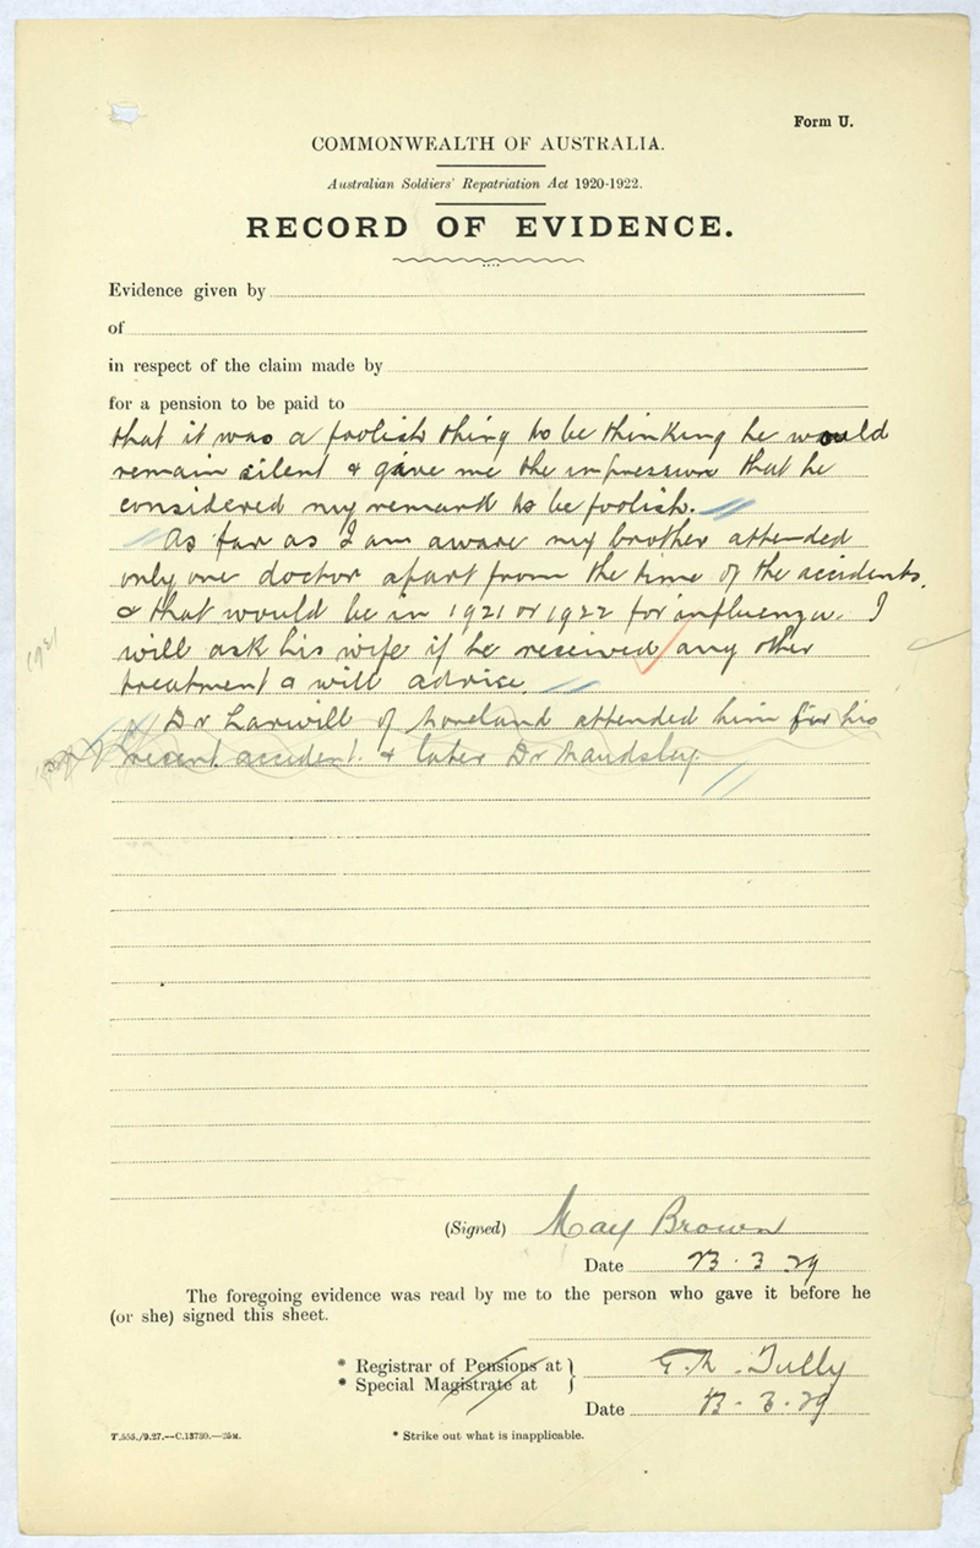 Form U.
COMMONWEALTH OF AUSTRALIA.
Australian Soldiers' Repatriation Act 1920-1922.
RECORD OF EVIDENCE.
Evidence given by
of
in respect of the claim made by
for a pension to be paid to
that it was a foolish thing to be thinking he would
remain silent & gave me the impression that he
considered my remark to be foolish.
As far as I am aware my brother attended
only one doctor apart from the time of the accidents,
& that would be in 1921 or 1922 for influenza. I
will ask his wife if he received any other
treatment & will advise.
Dr Larwill of Moreland attended him for his
recent accident. & later Dr Maudsley.
1931
(Signed) May Brown
Date 13.3.29
The foregoing evidence was read by me to the person who gave it before he
(or she) signed this sheet.
* Registrar of Pensions at }
* Special Magistrate at } Tully
Date 13.3.29
T.555./9.27.—C.13780.—25M.
* Strike out what is inapplicable.